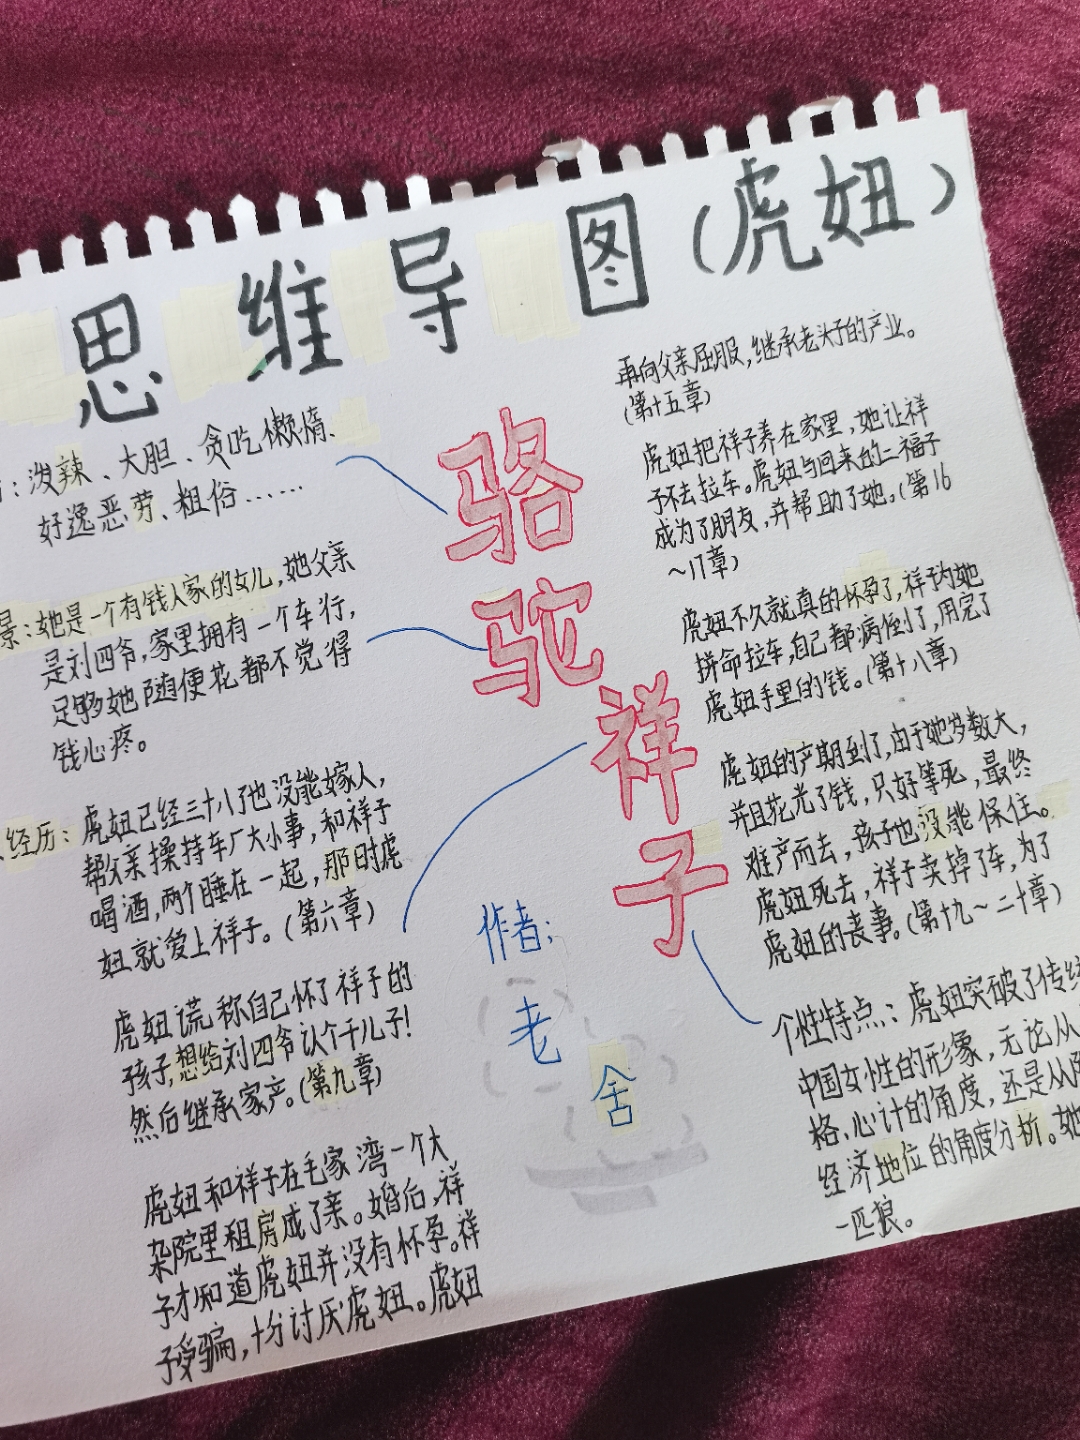 思维导图（虎妞）
：泼辣、大胆、贪吃懒惰、
好逸恶劳、粗俗……
景：她是一个有钱人家的女儿，她父亲
是刘四爷，家里拥有一个车行，
足够她随便花都不觉得
钱心疼。
经历：虎妞已经三十八了也没能嫁人，
帮父亲操持车厂大小事，和祥子
喝酒，两个睡在一起，那时虎
妞就爱上祥子。（第六章）
虎妞谎称自己怀了祥子的
孩子，想给刘四爷认个干儿子！
然后继承家产。（第九章）
虎妞和祥子在毛家湾一个大
杂院里租房成了亲。婚后，祥
子才知道虎妞并没有怀孕。祥
子受骗，十分讨厌虎妞。虎妞
骆
驼
祥
子
作者：
老
舍
再向父亲屈服，继承老头子的产业。
（第十五章）
虎妞把祥子养在家里，她让祥
子不去拉车。虎妞与回来的二福子
成为了朋友，并帮助了她。（第16
～17章）
虎妞不久就真的怀孕了，祥子为她
拼命拉车，自己都病倒了，用完了
虎妞手里的钱。（第十八章）
虎妞的产期到了，由于她岁数大，
并且花光了钱，只好等死，最终
难产而去，孩子也没能保住。
虎妞死去，祥子卖掉了车，为了
虎妞的丧事。（第十九～二十章）
个性特点：虎妞突破了传统
中国女性的形象，无论从
格、心计的角度，还是从
经济地位的角度分析。她
一匹狼。